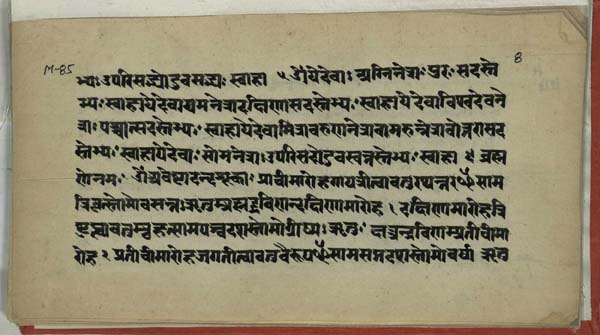 M-85
8
भ्यः उपरिसद्भ्योऽवसद्भ्यः स्वाहा ५ ॐ येदेवाः अग्निनेत्राः पुरः सदस्ते
भ्यः स्वाहायेदेवायमनेत्रादक्षिणासदस्तेभ्यः स्वाहायेदेवाविश्वदेवने
त्राः पश्चात्सदस्तेभ्यः स्वाहायेदेवामित्रावरुणनेत्रावामरुन्नेत्रावोत्तरासद
स्तेभ्यः स्वाहायेदेवाः सोमनेत्राः उपरिसदोदुवस्वन्तस्तेभ्यः स्वाहा ब्रह्म
णेनमः ॐ अवेष्टादन्दशूकाः प्राचीमारोहगायत्रीत्वावतुरथन्तरᳪसाम
त्रिवृत्स्तोमोवसन्तऋतुर्ब्रह्मद्रविणन्दक्षिणामारोह । दक्षिणामारोहत्रि
ष्टुप्त्वावतुबृहत्सामपञ्चदशस्तोमोग्रीष्मऋतुः क्षत्रन्द्रविणम्प्रतीचीमा
रोह २ प्रतीचीमारोहजगतीत्वावतुवैरूपᳪसामसप्तदशस्तोमोवर्षा ऋतु